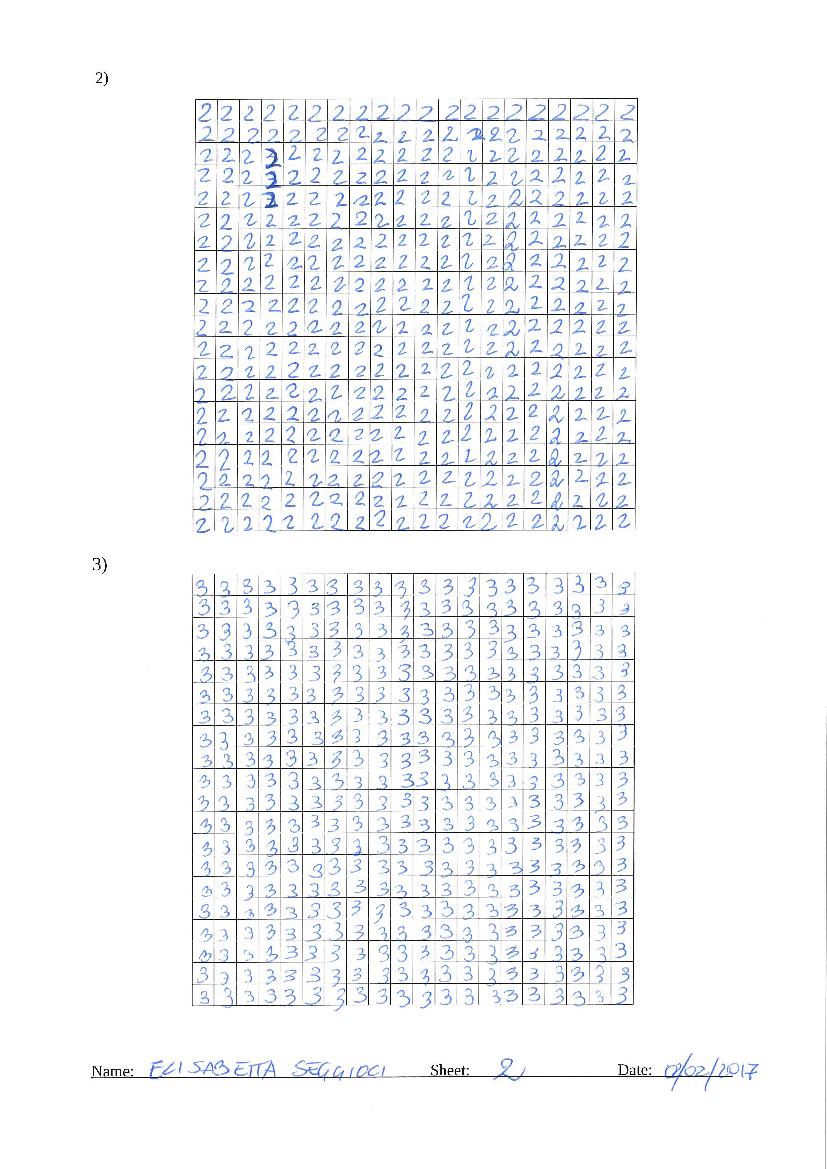 2)
2 2 2 2 2 2 2 2 2 2 2 2 2 2 2 2 2 2 2 2
2 2 2 2 2 2 2 2 2 2 2 2 2 2 2 2 2 2 2 2
2 2 2 2 2 2 2 2 2 2 2 2 2 2 2 2 2 2 2 2
2 2 2 2 2 2 2 2 2 2 2 2 2 2 2 2 2 2 2 2
2 2 2 2 2 2 2 2 2 2 2 2 2 2 2 2 2 2 2 2
2 2 2 2 2 2 2 2 2 2 2 2 2 2 2 2 2 2 2 2
2 2 2 2 2 2 2 2 2 2 2 2 2 2 2 2 2 2 2 2
2 2 2 2 2 2 2 2 2 2 2 2 2 2 2 2 2 2 2 2
2 2 2 2 2 2 2 2 2 2 2 2 2 2 2 2 2 2 2 2
2 2 2 2 2 2 2 2 2 2 2 2 2 2 2 2 2 2 2 2
2 2 2 2 2 2 2 2 2 2 2 2 2 2 2 2 2 2 2 2
2 2 2 2 2 2 2 2 2 2 2 2 2 2 2 2 2 2 2 2
2 2 2 2 2 2 2 2 2 2 2 2 2 2 2 2 2 2 2 2
2 2 2 2 2 2 2 2 2 2 2 2 2 2 2 2 2 2 2 2
2 2 2 2 2 2 2 2 2 2 2 2 2 2 2 2 2 2 2 2
2 2 2 2 2 2 2 2 2 2 2 2 2 2 2 2 2 2 2 2
2 2 2 2 2 2 2 2 2 2 2 2 2 2 2 2 2 2 2 2
2 2 2 2 2 2 2 2 2 2 2 2 2 2 2 2 2 2 2 2
2 2 2 2 2 2 2 2 2 2 2 2 2 2 2 2 2 2 2 2
2 2 2 2 2 2 2 2 2 2 2 2 2 2 2 2 2 2 2 2
3)
3 3 3 3 3 3 3 3 3 3 3 3 3 3 3 3 3 3 3 3
3 3 3 3 3 3 3 3 3 3 3 3 3 3 3 3 3 3 3 3
3 3 3 3 3 3 3 3 3 3 3 3 3 3 3 3 3 3 3 3
3 3 3 3 3 3 3 3 3 3 3 3 3 3 3 3 3 3 3 3
3 3 3 3 3 3 3 3 3 3 3 3 3 3 3 3 3 3 3 3
3 3 3 3 3 3 3 3 3 3 3 3 3 3 3 3 3 3 3 3
3 3 3 3 3 3 3 3 3 3 3 3 3 3 3 3 3 3 3 3
3 3 3 3 3 3 3 3 3 3 3 3 3 3 3 3 3 3 3 3
3 3 3 3 3 3 3 3 3 3 3 3 3 3 3 3 3 3 3 3
3 3 3 3 3 3 3 3 3 3 3 3 3 3 3 3 3 3 3 3
3 3 3 3 3 3 3 3 3 3 3 3 3 3 3 3 3 3 3 3
3 3 3 3 3 3 3 3 3 3 3 3 3 3 3 3 3 3 3 3
3 3 3 3 3 3 3 3 3 3 3 3 3 3 3 3 3 3 3 3
3 3 3 3 3 3 3 3 3 3 3 3 3 3 3 3 3 3 3 3
3 3 3 3 3 3 3 3 3 3 3 3 3 3 3 3 3 3 3 3
3 3 3 3 3 3 3 3 3 3 3 3 3 3 3 3 3 3 3 3
3 3 3 3 3 3 3 3 3 3 3 3 3 3 3 3 3 3 3 3
3 3 3 3 3 3 3 3 3 3 3 3 3 3 3 3 3 3 3 3
3 3 3 3 3 3 3 3 3 3 3 3 3 3 3 3 3 3 3 3
3 3 3 3 3 3 3 3 3 3 3 3 3 3 3 3 3 3 3 3
Name: ELISABETTA Sheet: 2 Date: /02/2017